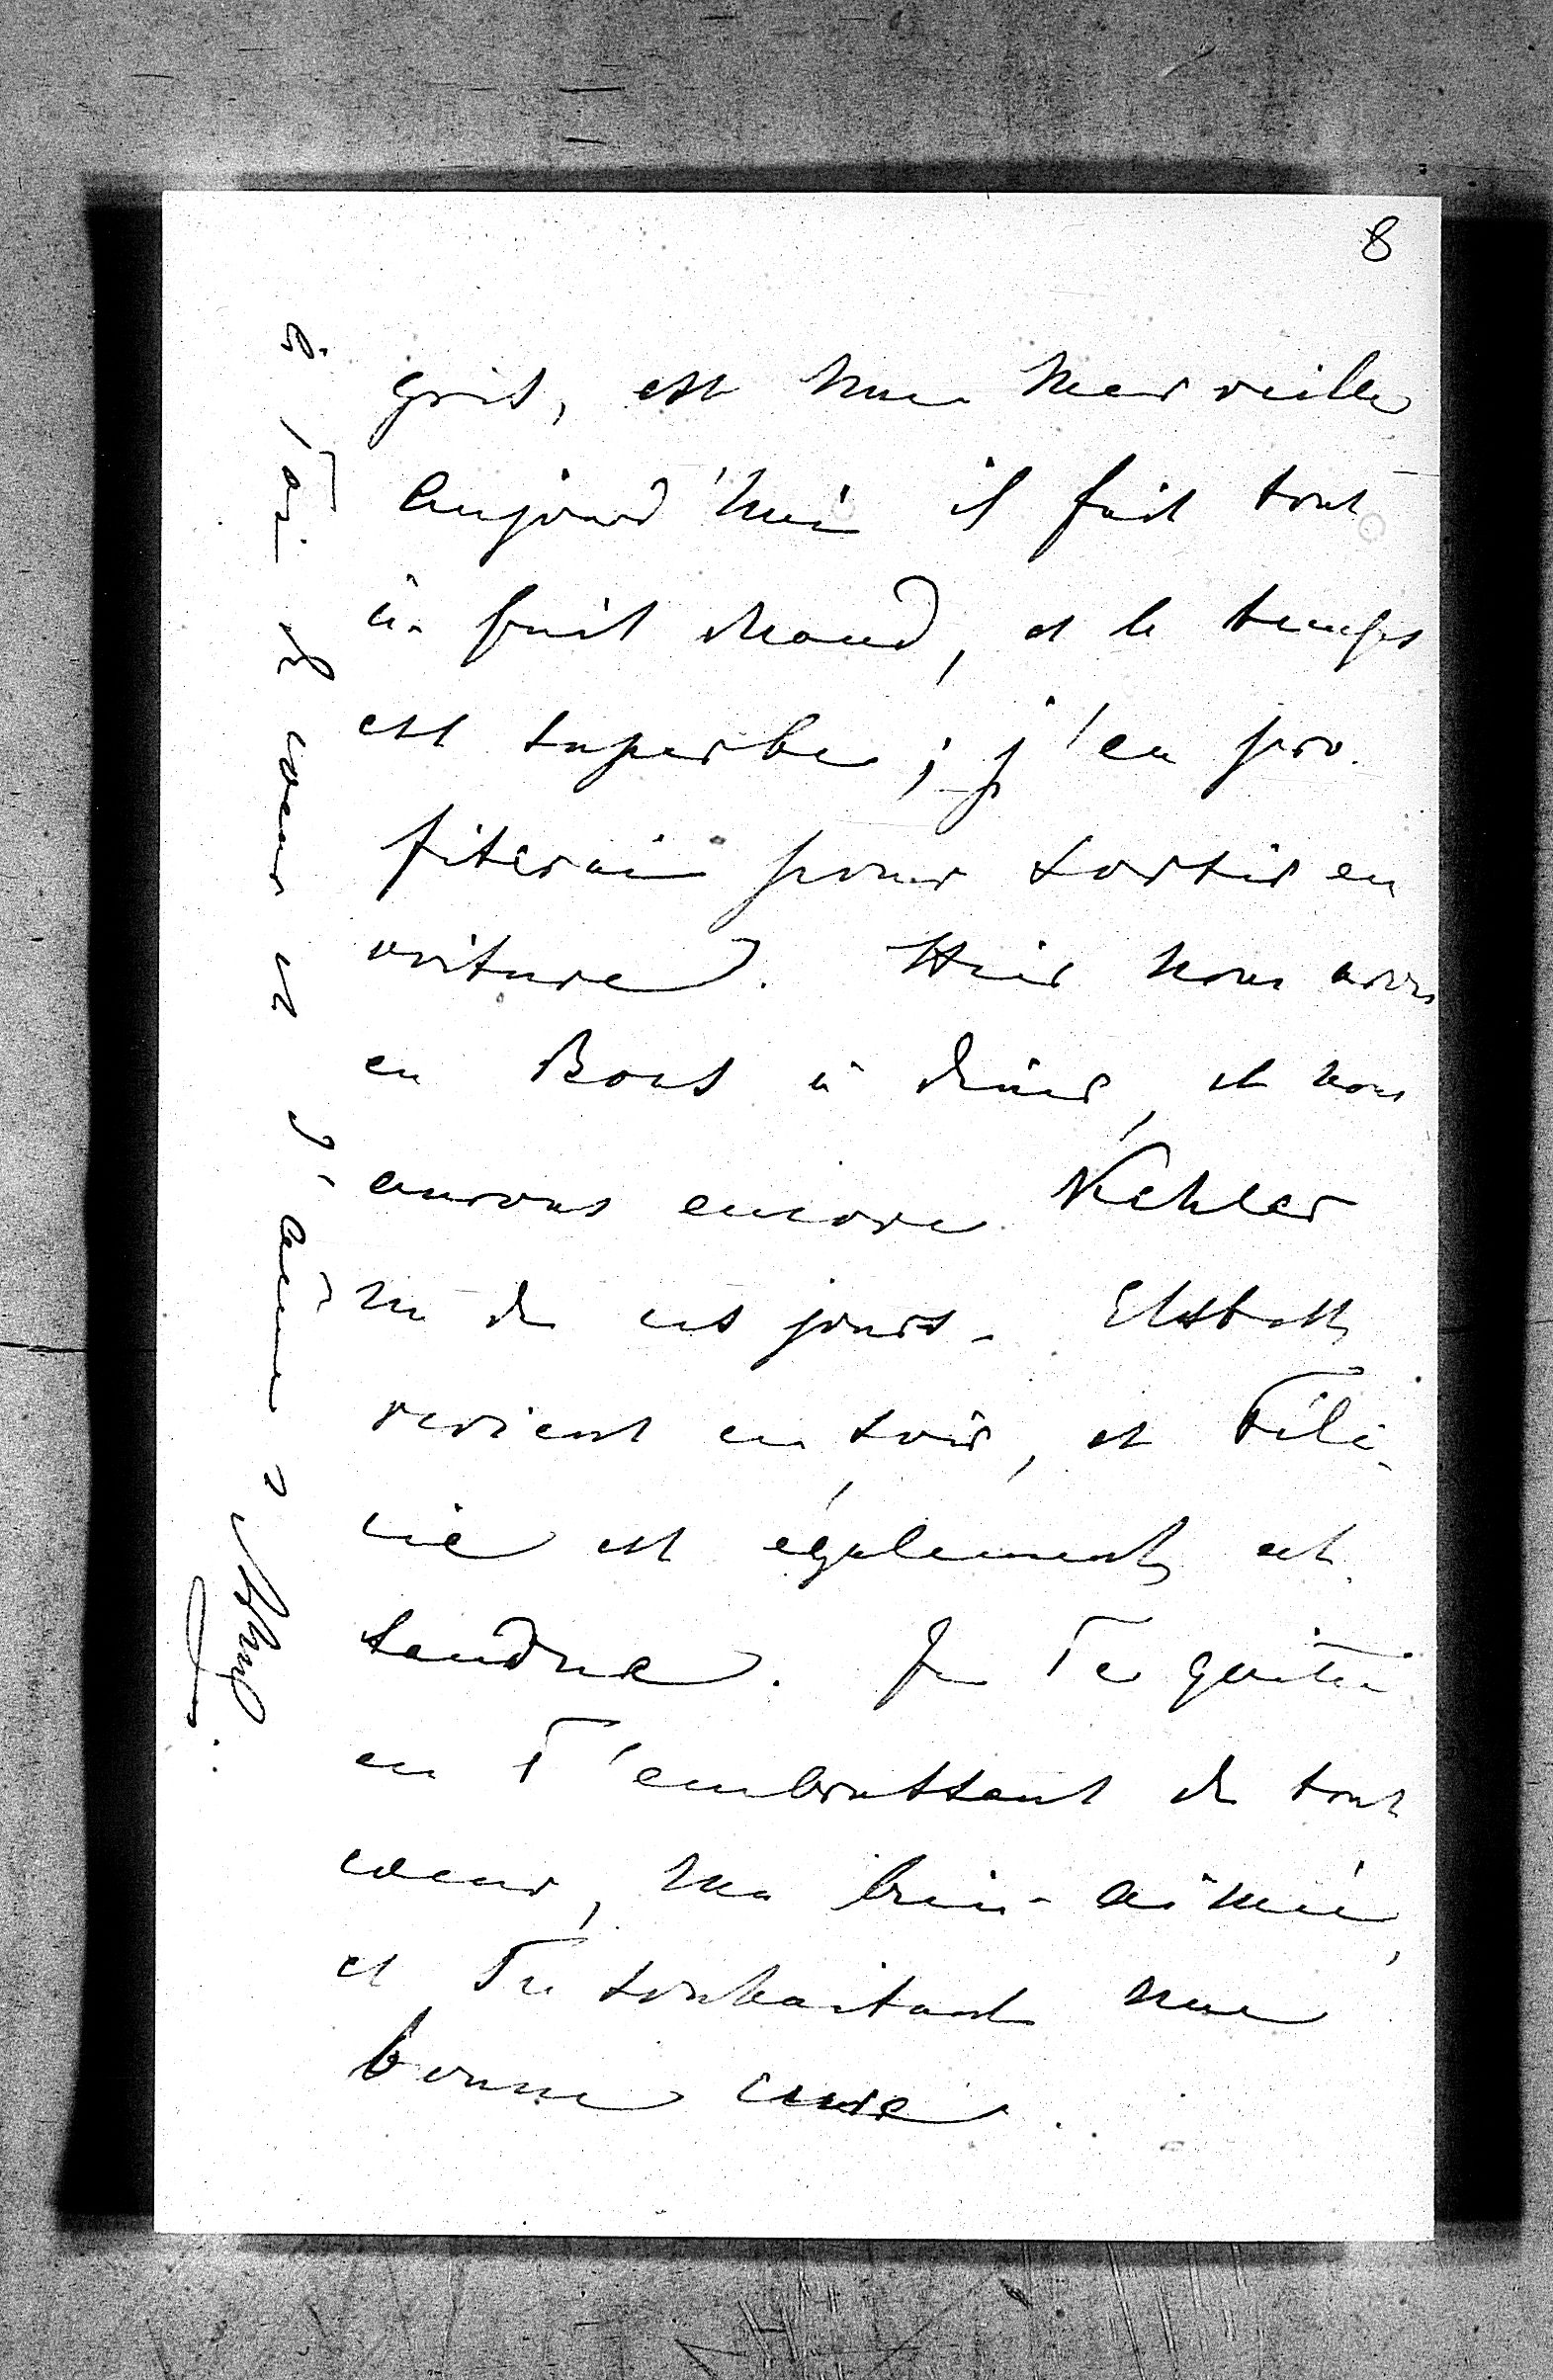 8
gris, est une merveille
Aujourd'hui il fait tout
à-fait chaud, et le temps
est superbe; j'en pro-
fiterai pour sortir en
voiture. Hier nous avons
eu Boos à dîner, et nous
aurons encore Kehler
un de ces jours. Elsbeth
revient ce soir, et Féli-
cie est également at-
tendue. Je Te quitte
en T'embrassant de tout
coeur, ma bien-aimée,
et Te souhaitant une
bonne cure.
à Toi de coeur et d'âme